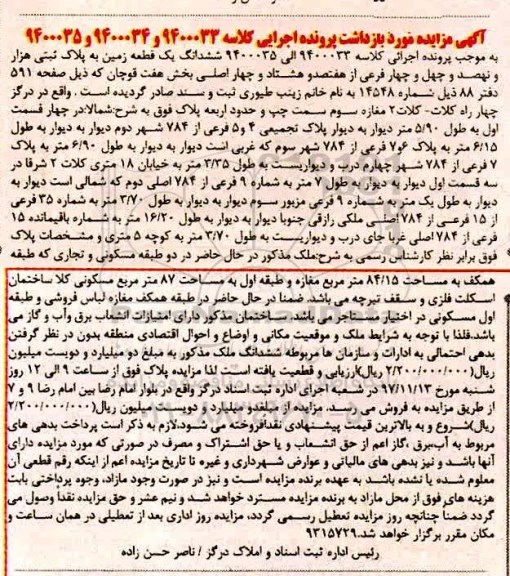 آگهی مزایده مورد بازداشت پرونده اجرایی کلاسه ۹۴۰۰۰۳۳ و ۹۴۰۰۰۳۴ و ۹۴۰۰۰۳۵
به موجب پرونده اجرائی کلاسه ۹۴۰۰۰۳۳ الی ۹۴۰۰۰۳۵ ششدانگ یک قطعه زمین به پلاک ثبتی هزار
و نهصد و چهل و چهار فرعی از هفتصدو هشتاد و چهار اصلی بخش هفت قوچان که ذیل صفحه ۵۹۱
دفتر ۸۸ ذیل شماره ۱۴۵۴۸ به نام خانم زینب طیوری ثبت و سند صادر گردیده است . واقع در درگز
چهار راه کلات- کلات۲ مغازه سوم سمت چپ و حدود اربعه پلاک فوق به شرح:شمالا:در چهار قسمت
اول به طول ۵/۹۰ متر دیوار به دیوار پلاک تجمیعی ۴ و۵ فرعی از ۷۸۴ شهر دوم دیوار به دیوار به طول
۶/۱۵ متر به پلاک ۶و۷ فرعی از ۷۸۴ شهر سوم که غربی است دیوار به دیوار به طول ۶/۹۰ متر به پلاک
۷ فرعی از ۷۸۴ شهر چهارم درب و دیواریست به طول ۳/۳۵ متر به خیابان ۱۸ متری کلات ۲ شرقا در
سه قسمت اول دیوار به دیوار به طول ۷ متر به شماره ۹ فرعی از ۷۸۴ اصلی دوم که شمالی است دیوار به
دیوار به طول یک متر به شماره ۹ فرعی مزبور سوم دیوار به دیوار به طول ۳/۷۰ متر به شماره ۳۵ فرعی
از ۱۵ فرعی از ۷۸۴ اصلی ملکی رازقی جنوبا دیوار به دیوار به طول ۱۶/۲۰ متر به شماره باقیمانده ۱۵
فرعی از ۷۸۴ اصلی غربا جای درب و دیواریست به طول ۳/۷۰ متر به کوچه ۵ متری و مشخصات پلاک
فوق برابر نظر کارشناس رسمی به شرح:ملک مذکور در حال حاضر در دو طبقه مسکونی و تجاری که طبقه
همکف به مساحت ۸۴/۱۵ متر مربع مغازه و طبقه اول به مساحت ۸۷ متر مربع مسکونی کلا ساختمان
اسکلت فلزی و سقف تیرچه می باشد. ضمنا در حال حاضر در طبقه همکف مغازه لباس فروشی و طبقه
اول مسکونی در اختیار مستاجر می باشد. ساختمان مذکور دارای امتیازات انشعاب برق وآب و گاز می
باشد.فلذا با توجه به شرایط ملک و موقعیت مکانی و اوضاع و احوال اقتصادی منطقه بدون در نظر گرفتن
بدهی احتمالی به ادارات و سازمان ها مربوطه ششدانگ ملک مذکور به مبلغ دو میلیارد و دویست میلیون
ریال(۲/۲۰۰/۰۰۰/۰۰۰ ریال)ارزیابی و قطعیت یافته است لذا مزایده پلاک فوق از ساعت ۹ الی ۱۲ روز
شنبه مورخ ۹۷/۱۱/۱۳ در شعبه اجرای اداره ثبت اسناد درگز واقع در بلوار امام رضا بین امام رضا ۹ و ۷
از طریق مزایده به فروش می رسد. مزایده از مبلغدو میلیارد و دویست میلیون ریال(۲/۲۰۰/۰۰۰/۰۰۰
ریال)شروع و به بالاترین قیمت پیشنهادی نقدافروخته می شود.لازم به ذکر است پرداخت بدهی های
مربوط به آب،برق ،گاز اعم از حق انشعاب و یا حق اشتراک و مصرف در صورتی که مورد مزایده دارای
آنها باشد و نیز بدهی های مالیاتی و عوارض شهرداری و غیره تا تاریخ مزایده اعم از اینکه رقم قطعی آن
معلوم شده یا نشده باشد به عهده برنده مزایده است و نیز در صورت وجود مازاد، وجوه پرداختی بابت
هزینه های فوق از محل مازاد به برنده مزایده مسترد خواهد شد و نیم عشر و حق مزایده نقدا وصول می
گردد ضمنا چنانچه روز مزایده تعطیل رسمی گردد، مزایده روز اداری بعد از تعطیلی در همان ساعت و
مکان مقرر برگزار خواهد شد.۹۳۱۵۷۲۹
رئیس اداره ثبت اسناد و املاک درگز / ناصر حسن زاده